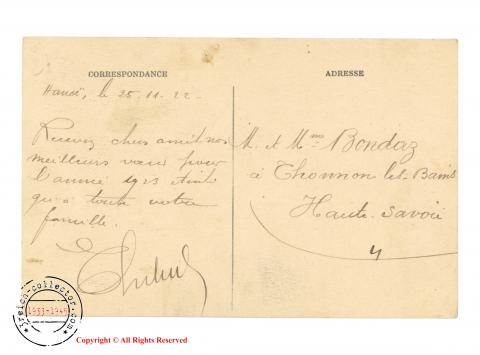 CORRESPONDANCE
ADRESSE
Hanoï, le 25.11.22.
Recevez chers amis nos
meilleurs vœux pour
l'année 1923 Ainsi
qu'à toute votre
famille.
M. et Mme Bondaz
à Thonnon les-Bains
Haute-Savoie
ireich-collector.com
1933-1945
Copyright © All Rights Reserved